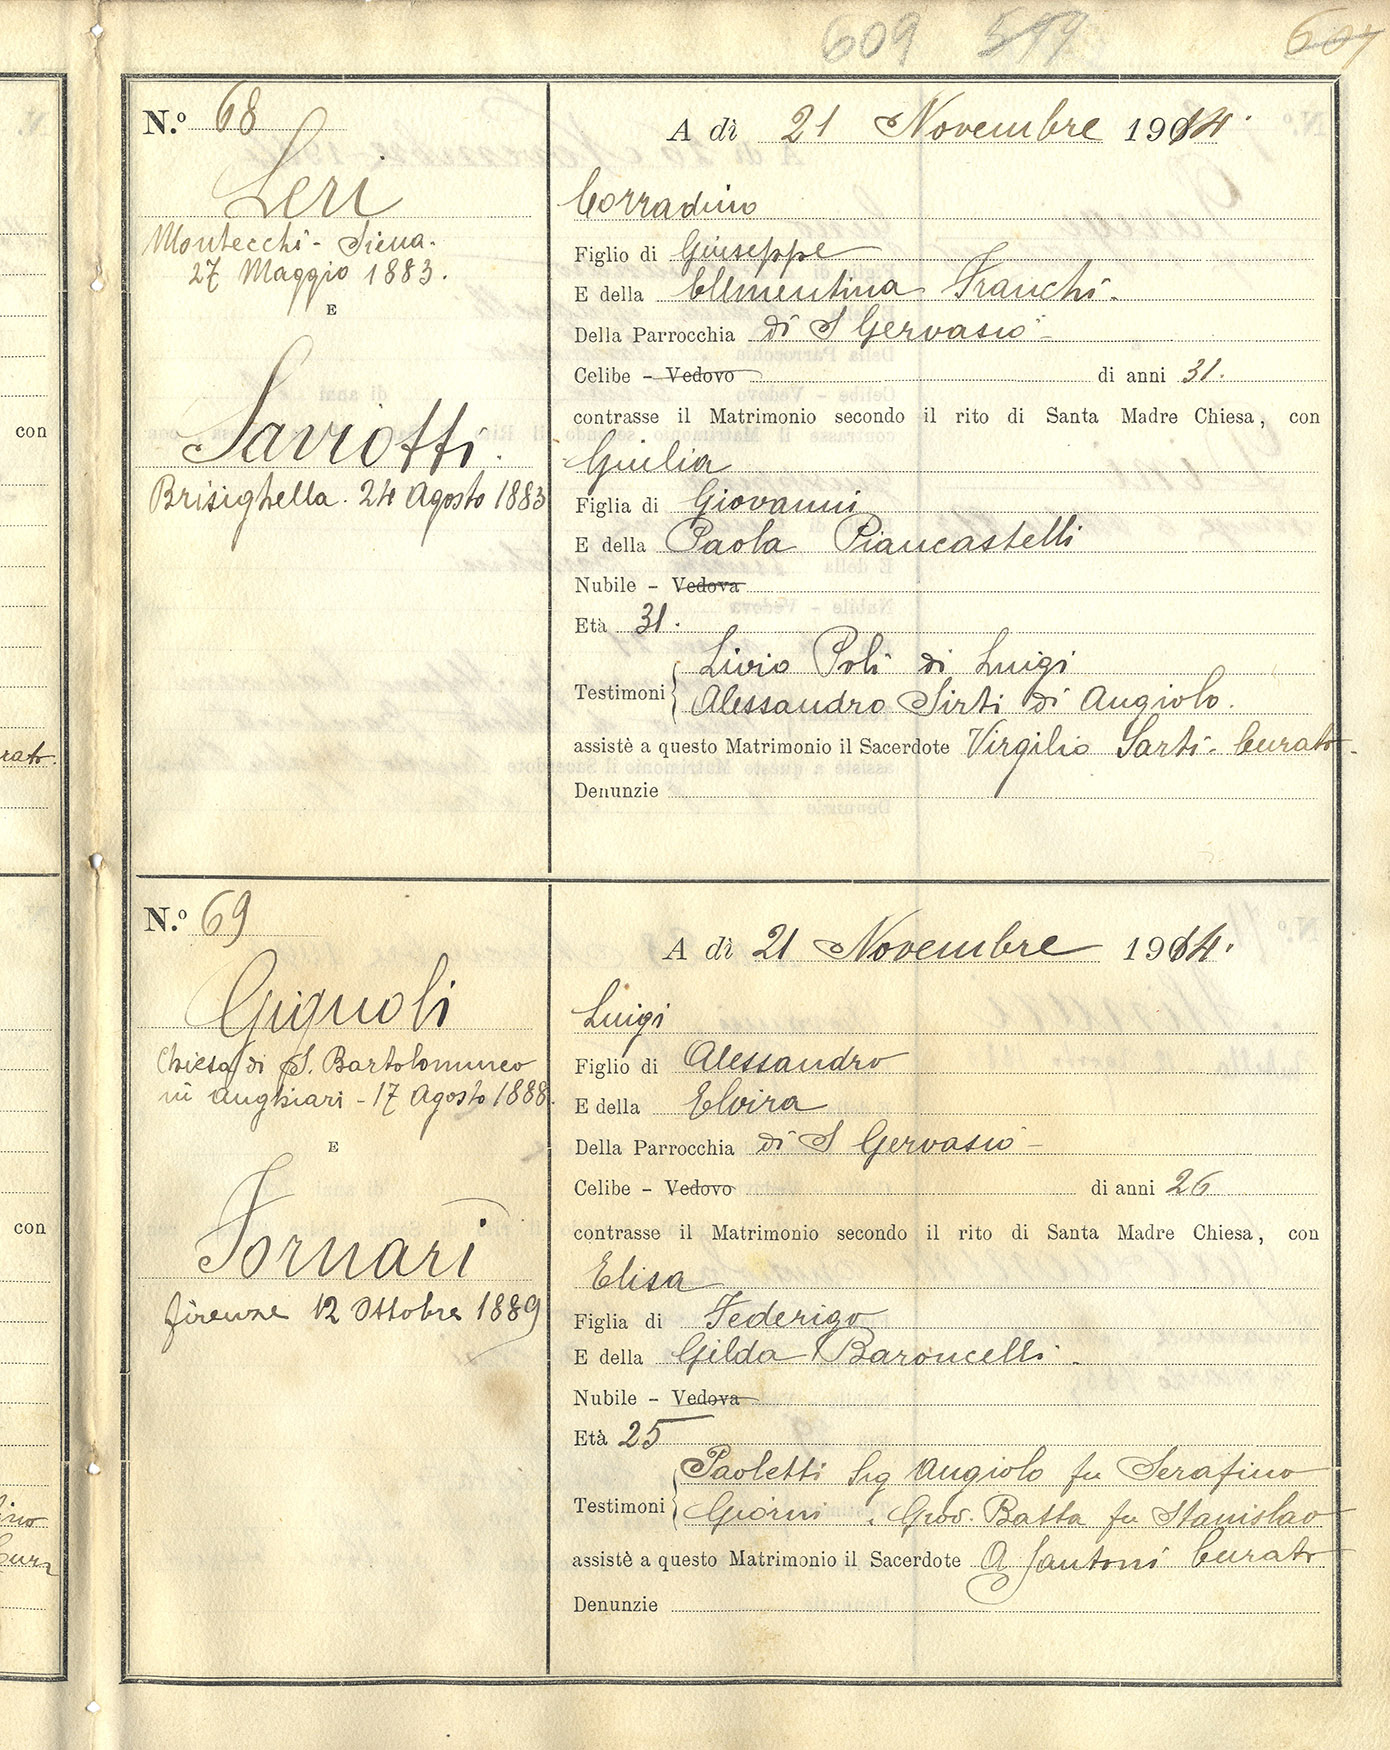 609 519 607
N.º 68
A dì 21 Novembre 1914.
Leri
Montecchi - Siena.
27 Maggio 1883.
E
Saviotti.
Brisighella. 24 Agosto 1883
Corradino
Figlio di Giuseppe
E della Clementina Franchi.
Della Parrocchia di S Gervasio
Celibe - Vedovo di anni 31.
contrasse il Matrimonio secondo il rito di Santa Madre Chiesa, con
Giulia
Figlia di Giovanni
E della Paola Piancastelli
Nubile - Vedova
Età 31.
Livio Poli di Luigi
Testimoni
Alessandro Sirti di Angiolo.
assistè a questo Matrimonio il Sacerdote Virgilio Sarti. Curato.
Denunzie
con
rato.
N.º 69
A dì 21 Novembre 1914.
Gignoli
Chiesa di S. Bartolommeo
in Anghiari - 17 Agosto 1888.
E
Fornari
Firenze 12 Ottobre 1889
Luigi
Figlio di Alessandro
E della Elvira
Della Parrocchia di S Gervasio
Celibe - Vedovo di anni 26
contrasse il Matrimonio secondo il rito di Santa Madre Chiesa, con
Elisa
Figlia di Federigo
E della Gilda Baroncelli.
Nubile - Vedova
Età 25
Paoletti Sig Angiolo fu Serafino
Testimoni
Giorni . Giov. Batta fu Stanislao
assistè a questo Matrimonio il Sacerdote A Santoni Curato
Denunzie
con